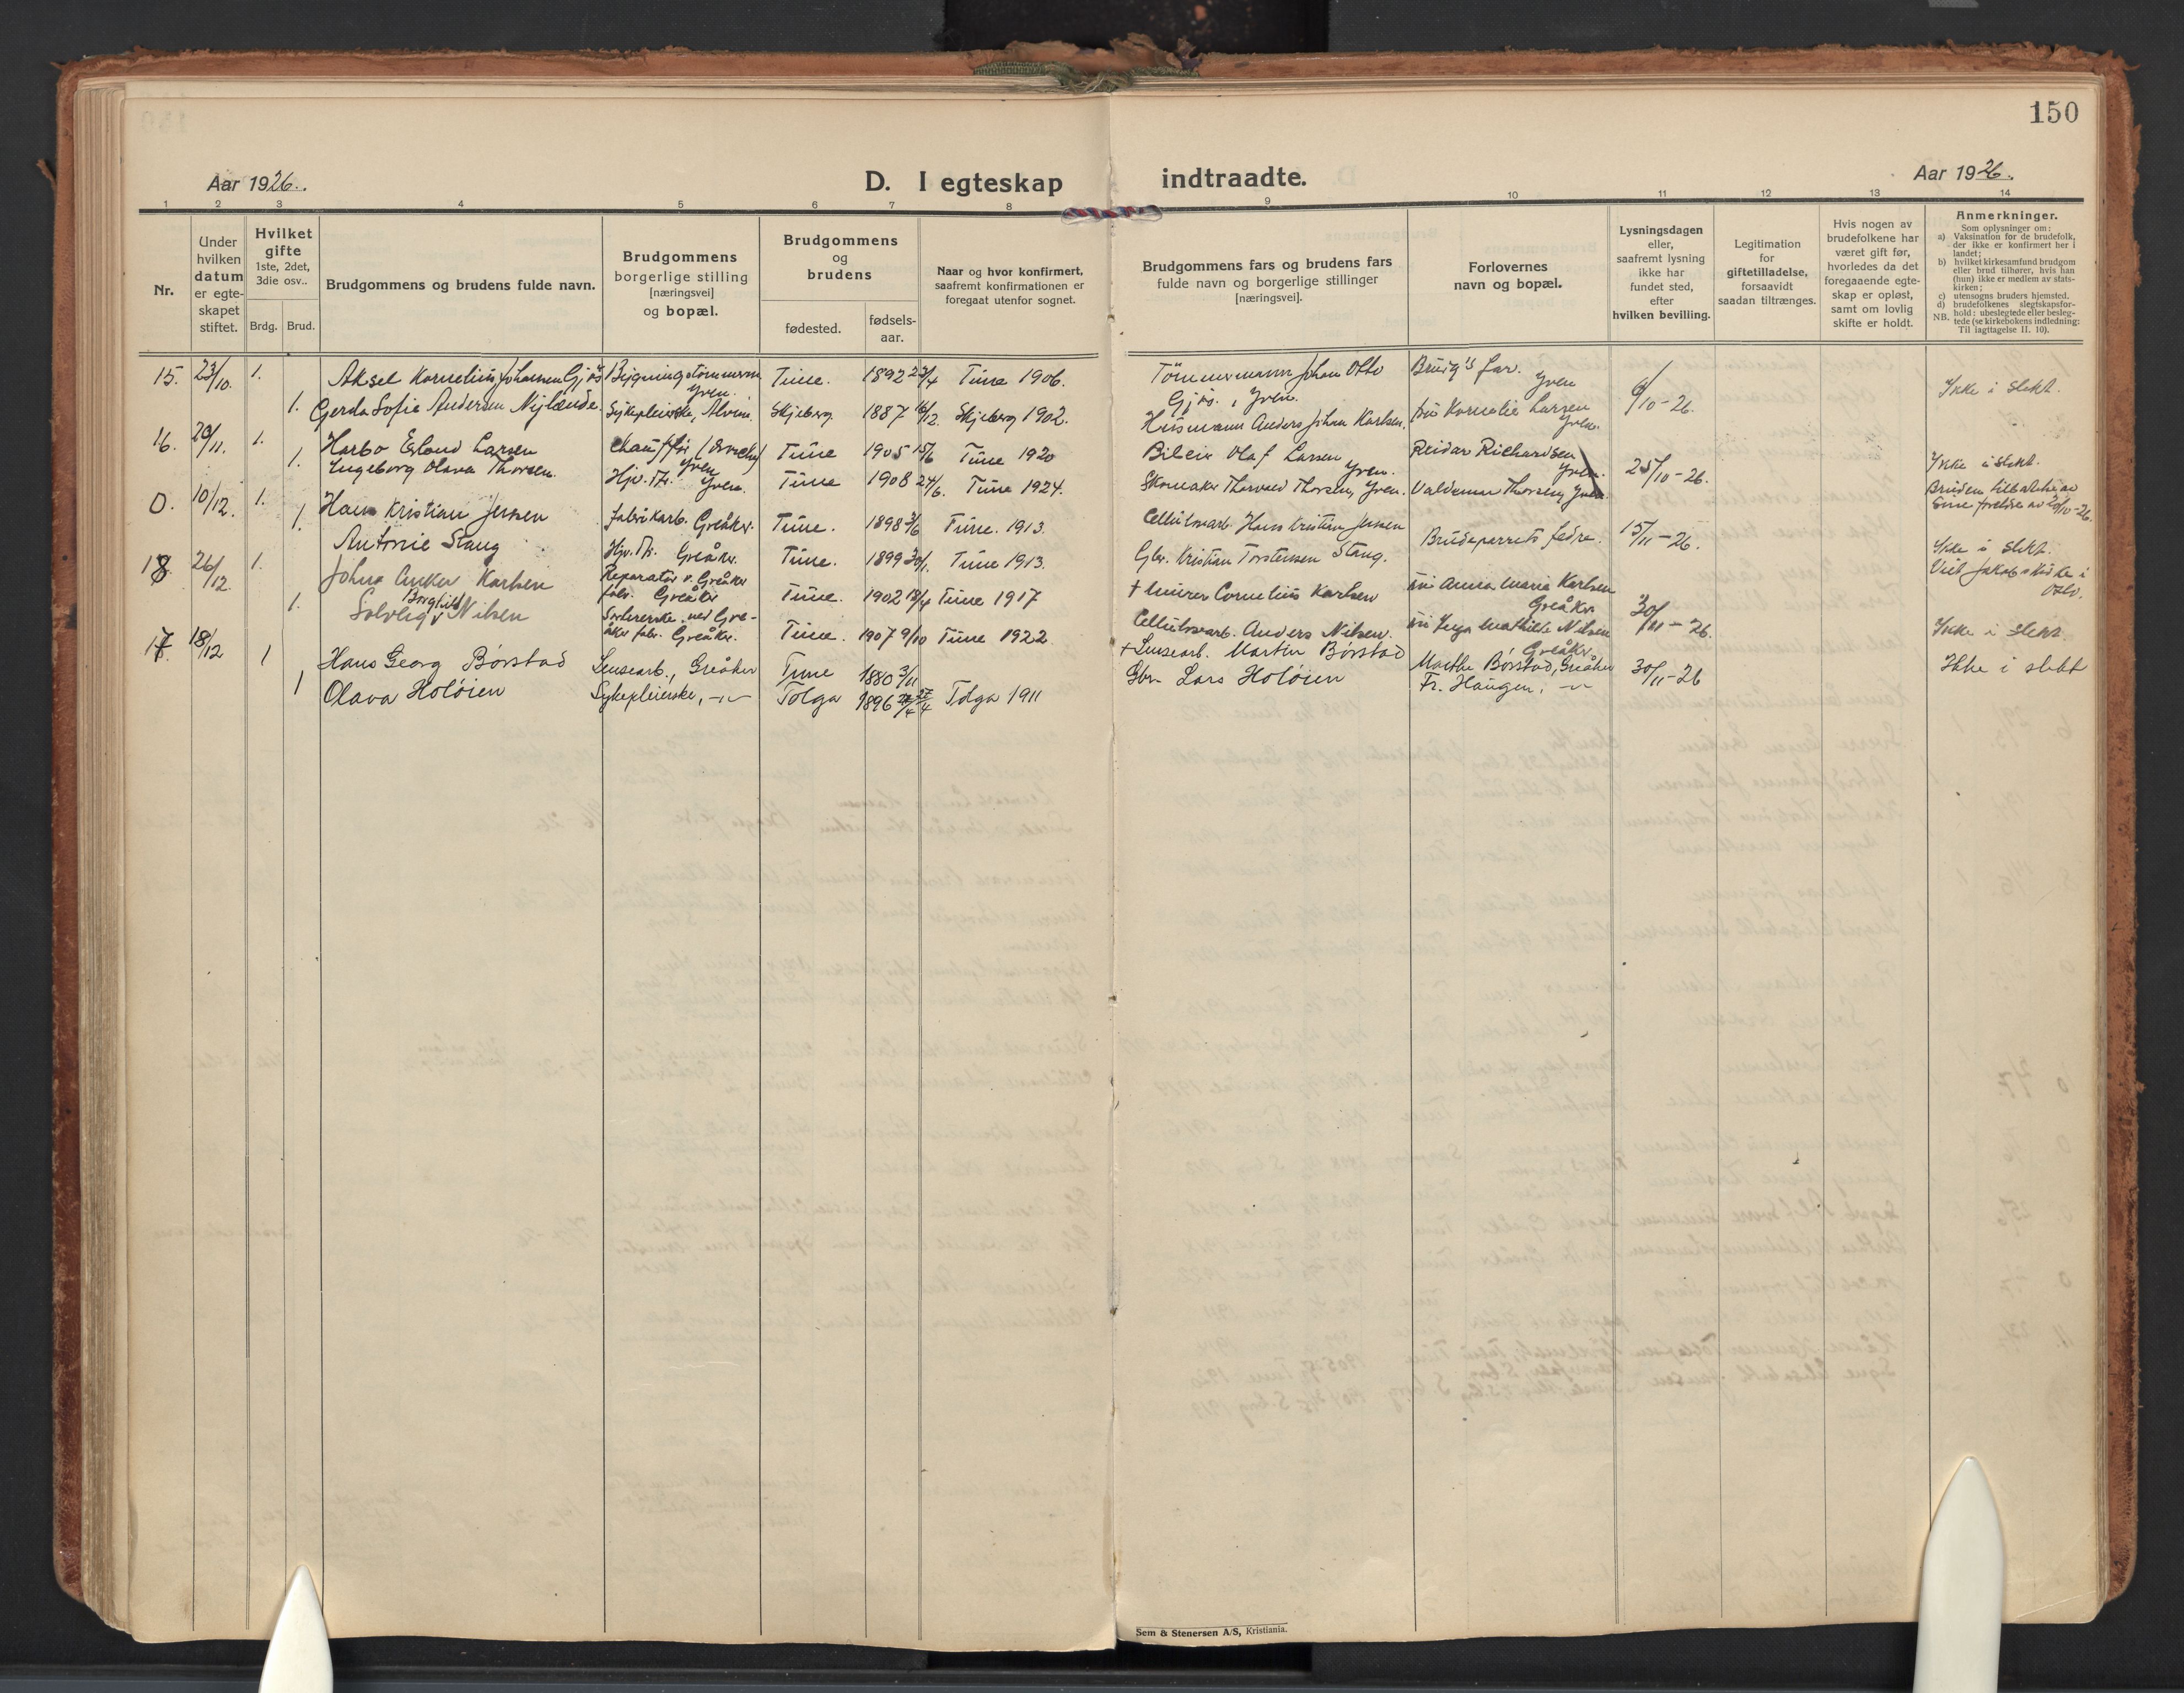 150
Aar 1926.
D. I egteskap indtraadte.
Aar 1926.
1 2 3 4 5 6 7 8 9 10 11 12 13 14
Nr.
Under
hvilken
datum
er egte-
skapet
stiftet.
Hvilket
gifte
1ste, 2det,
3die osv..
Brdg. Brud.
Brudgommens og brudens fulde navn.
Brudgommens
borgerlige stilling
[næringsvei]
og bopæl.
Brudgommens
og
brudens
fødested.
fødsels-
aar.
Naar og hvor konfirmert,
saafremt konfirmationen er
foregaat utenfor sognet.
Brudgommens fars og brudens fars
fulde navn og borgerlige stillinger
[næringsvei].
Forlovernes
navn og bopæl.
Lysningsdagen
eller,
saafremt lysning
ikke har
fundet sted,
efter
hvilken bevilling.
Legitimation
for
giftetilladelse,
forsaavidt
saadan tiltrænges.
Hvis nogen av
brudefolkene har
været gift før,
hvorledes da det
foregaaende egte-
skap er opløst,
samt om lovlig
skifte er holdt.
Anmerkninger.
Som oplysninger om:
a) Vaksination for de brudefolk,
der ikke er konfirmert her i
landet;
b) hvilket kirkesamfund brudgom
eller brud tilhører, hvis han
(hun) ikke er medlem av stats-
kirken;
c) utensogns bruders hjemsted.
d) brudefolkenes slegtskapsfor-
hold: ubeslegtede eller besleg-
NB. tede (se kirkebokens indledning:
Til iagttagelse II. 10).
15. 23/10. 1. Aksel Kornelius Johansen Gjøs Bygningstømmerm. Yven. Tune. 1892 23/4 Tune 1906. Tømmermann Johan Otto Gjøs., Yven. Brudg's far. Yven 6/10-26. Ikke i slekt.
1. Gerda Sofie Andersen Nylænde. Sykepleierske, Alvim. Skjeberg 1887 16/2. Skjeberg 1902. Husmann Anders Johan Karlsen. fru Kornelie Larsen Yven.
16. 20/11. 1. Harbo Erland Larsen Chauffør Yven Tune 1905 15/6 Tune 1920 Bileier Olaf Larsen Yven. Reidar Richardsen Yven. 25/10-26. Ikke i slekt.
1. Ingeborg Olava Thorsen. Hjv. Th. Yven. Tune 1908 24/6. Tune 1924. Skomaker Thorvald Thorsen, Yven. Valdemar Thorsen, Yven. Bruden tilbakeholdt
0. 10/12. 1. Hans Kristian Jensen Fabrikarb. Greåker. Tune. 1898 3/6 Tune. 1913. Cellulosearb. Hans Kristian Jensen Brudeparrets fedre. 15/11-26. Ikke i slekt.
1. Antonie Stang Hjv. Th. Greåker. Tune. 1899 30/1. Tune 1913. Gbr. Kristian Torstensen Stang. Viet Jakobs kirke i Oslo.
18. 26/12. 1. Johns Anker Karlsen Reparatør v. Greåker fabr. Greåker Tune. 1902 18/4 Tune 1917 + Murer Cornelius Karlsen fru Anna Marie Karlsen Greåker 30/11-26. Ikke i slekt
1. Solveig Borghild Nilsen Sortererske ved Gre-
åker fabr. Greåker. Tune. 1907 9/10 Tune 1922 Cellulosearb. Anders Nilsen. fru Inga Mathilde Nilsen Greåker
17. 18/12 1 Hans Georg Børstad Lensearb., Greåker Tune 1880 3/11 + Lensearb. Martin Børstad Marthe Børstad, Greåker 30/11-26 Ikke i slekt
1 Olava Holøien Sykepleierske, -"- Tolga 1896 27/4 Tolga 1911 Gbr. Lars Holøien Fr. Haugen, -"-
Sem & Stenersen A/S, Kristiania.